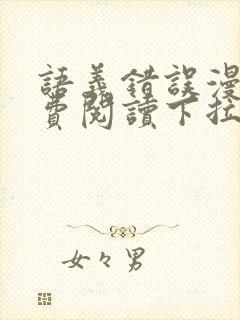 語義錯誤漫
費閱讀下拉
女々男